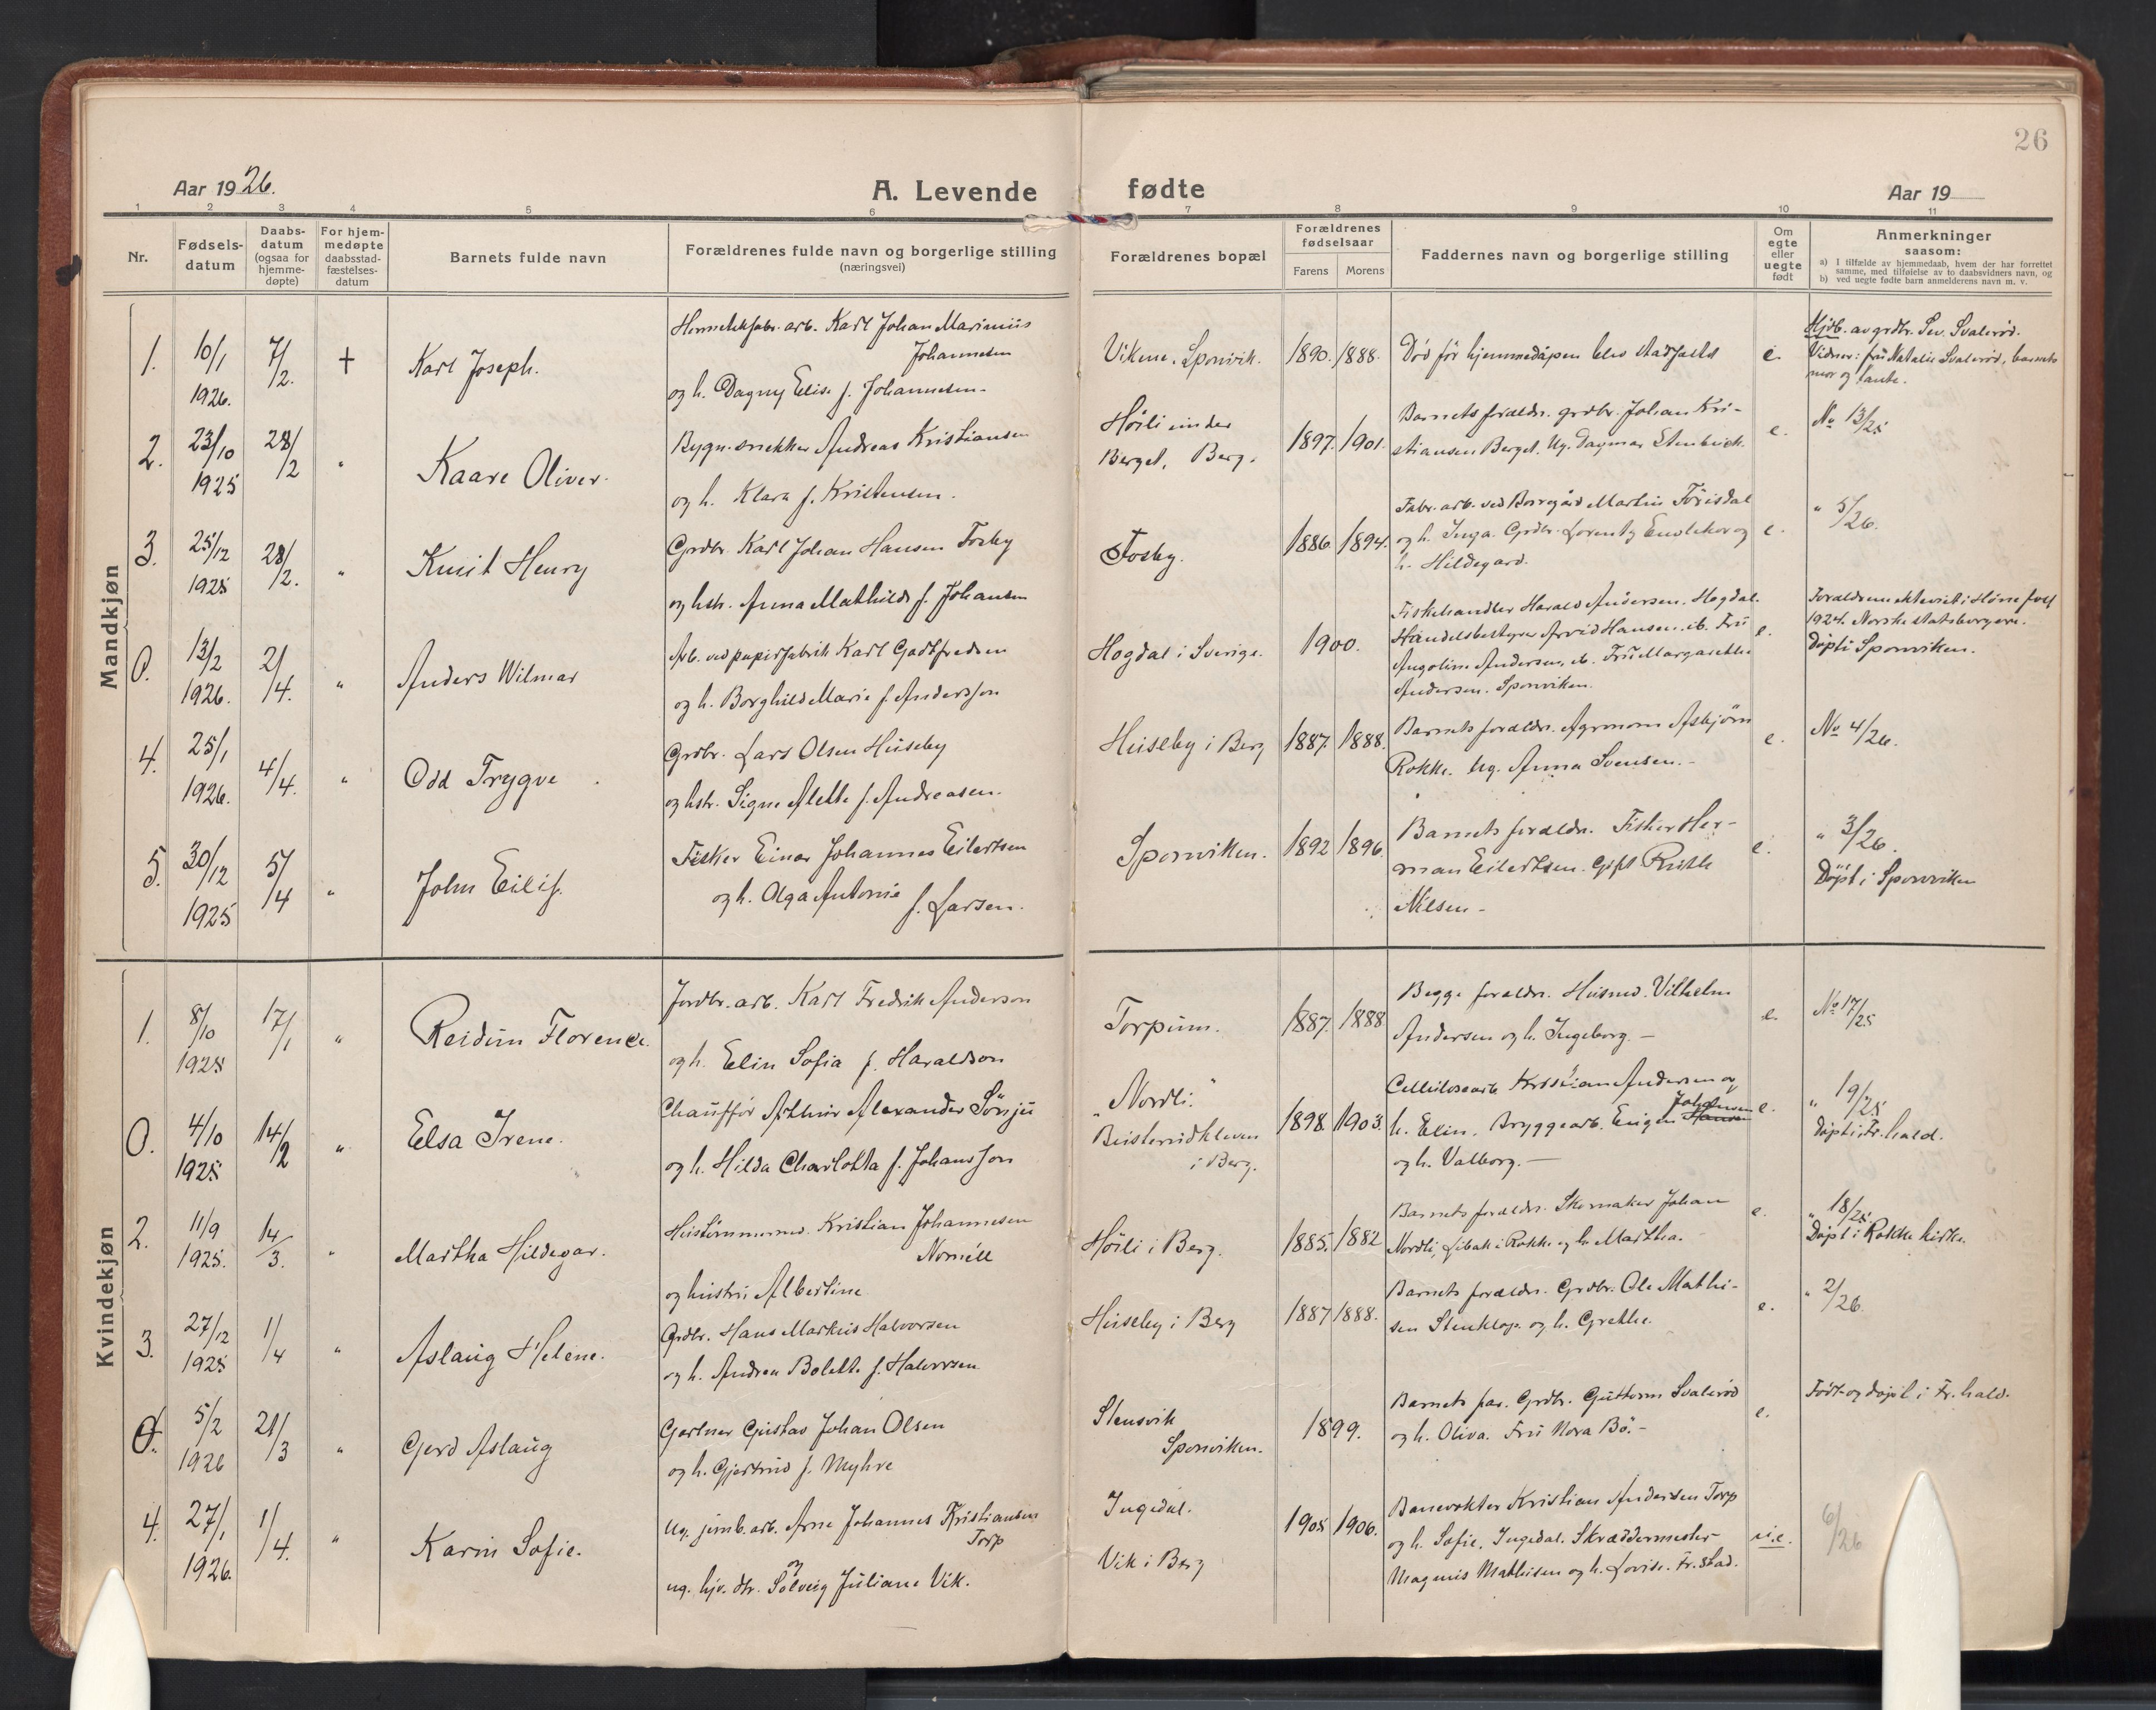 26
Aar 1926.
A. Levende fødte
Aar 19
1 2 3 4 5 6 7 8 9 10 11
Nr.
Fødsels-
datum
Daabs-
datum
(ogsaa for
hjemme-
døpte)
For hjem-
medøpte
daabsstad-
fæstelses-
datum
Barnets fulde navn
Forældrenes fulde navn og borgerlige stilling
(næringsvei)
Forældrenes bopæl
Forældrenes
fødselsaar
Farens Morens
Faddernes navn og borgerlige stilling
Om
egte
eller
uegte
født
Anmerkninger
saasom:
a) I tilfælde av hjemmedaab, hvem der har forrettet
samme, med tilføielse av to daabsvidners navn, og
b) ved uegte fødte barn anmelderens navn m. v.
Mandkjøn
1. 10/1 1926. 7/2. † Karl Joseph.
arb. Karl Johan Marinius
Johannesen
og h. Dagny Elise f. Johannesen.
Vikene, Sponvik. 1890. 1888.
Död för hjemmedåpen blev stadfæstet
e.
Hjdb. av grdbr. Sev. Svalerød.
Vidner: fru Natalie Svalerød, barnets
mor og tante.
2. 23/10 1925 28/2 " Kaare Oliver.
Bygn. snekker Andreas Kristiansen
og h. Klara f. Kristensen.
Höili under
Berget, Berg.
1897. 1901.
Barnets foreldr. grdbr. Johan Kri-
stiansen Berget. Ug. Dagmar Stenbæck.
e.
No 13/25
3. 25/12 1925 28/2. " Knut Henry
Grdbr. Karl Johan Hansen Fosby
og hstr. Anna Mathilde f. Johansen
Fosby.
1886. 1894.
Fabr. arb. ved Borregård Martin Torisdal
og h. Inga. Grdbr. Lorentz og
h. Hildegard.
e.
" 5/26.
0. 13/2 1926. 2/4. " Anders Wilmar
Arb. ved papirfabrik Karl Godtfredsen
og h. Borghild Marie f. Andersson
Hogdal i Sverige.
1900.
Fiskehandler Harald Andersen. Hogdal.
Handelsbestyrer Arvid Hansen. ib. Fru
Angoline Andersen, ib. Fru Margarethe
Andersen. Sponviken.
e.
Foreldrene ekteviet i
1924. Norske statsborgere.
Döpt i Sponviken.
4. 25/1 1926. 4/4. " Odd Trygve
Grdbr. Lars Olsen Huseby
og hstr. Signe Alette f. Andreasen.
Huseby i Berg
1887. 1888.
Barnets foreldr. Agronom Asbjörn
Rokke. Ug. Anna Svensen.-
e.
No 4/26.
5. 30/12 1925 5/4 " John Eilif.
Fisker Einar Johannes Eilertsen
og h. Olga Antonie f. Larsen.
Sponviken.
1892 1896.
Barnets foreldr. Fisker Her-
man Eilertsen. Gift Ruth
Nilsen-
e.
" 3/26.
Döpt i Sponviken
Kvindekjøn
1. 8/10 1925 17/1 " Reidun Florence.
Jordbr. arb. Karl Fredrik Anderson
og h. Elin Sofia f. Haraldson
Torpum.
1887. 1888
Begge foreldr. Husmd. Vilhelm
Andersen og h. Ingeborg.-
e.
No 17/25
0. 4/10 1925 14/2 " Elsa Irene.
Chauffør Arthur Alexander Sörsju
og h. Hilda Charlotta f. Johansson
"Nordli."
Busterudkleven
i Berg.
1898. 1903.
Cellulosearb. Kristian Andersen og
h. Elin. Bryggearb. Eugen Hansen Johansen
og h. Valborg.-
e.
" 19/25
Döpt i Fr.hald.
2. 11/9 1925. 14/3. " Martha Hildegar.
Hustömmermd. Kristian Johannesen
Noméll
og hustru Albertine.
Höili i Berg.
1885. 1882
Barnets foreldr. Skomaker Johan
Nordli, Libak i Rokke og h. Martha.
e.
" 18/25.
Döpt i Rokke kirke.
3. 27/12 1925 1/4 " Aslaug Helene.
Grdbr. Hans Markus Halvorsen
og h. Andrea Bolette f. Halvorsen
Huseby i Berg
1887 1888.
Barnets foreldr. Grdbr. Ole Mathi-
sen Stenklop. og h. Grethe.
e.
" 2/26.
0. 5/2 1926 21/3 " Gerd Aslaug
Gartner Gustav Johan Olsen
og h. Gjertrud f. Myhre
Stensvik
Sponviken.
1899.
Barnets far. Grdbr. Guttorm Svalerød
og h. Oliva. Fru Nora Bö.-
e.
Födt og döpt i Fr.hald.
4. 27/1 1926. 1/4. " Karin Sofie.
Ug. jernb. arb. Arne Johannes Kristiansen
Torp
og
ug. hjv. dtr. Solveig Juliane Vik.
Ingedal.
Vik i Berg
1905 1906.
Banevokter Kristian Andersen Torp
og h. Sofie, Ingedal. Skreddermester
Magnus Mathisen og h. Lovise. Fr.stad.
u.e.
6/26